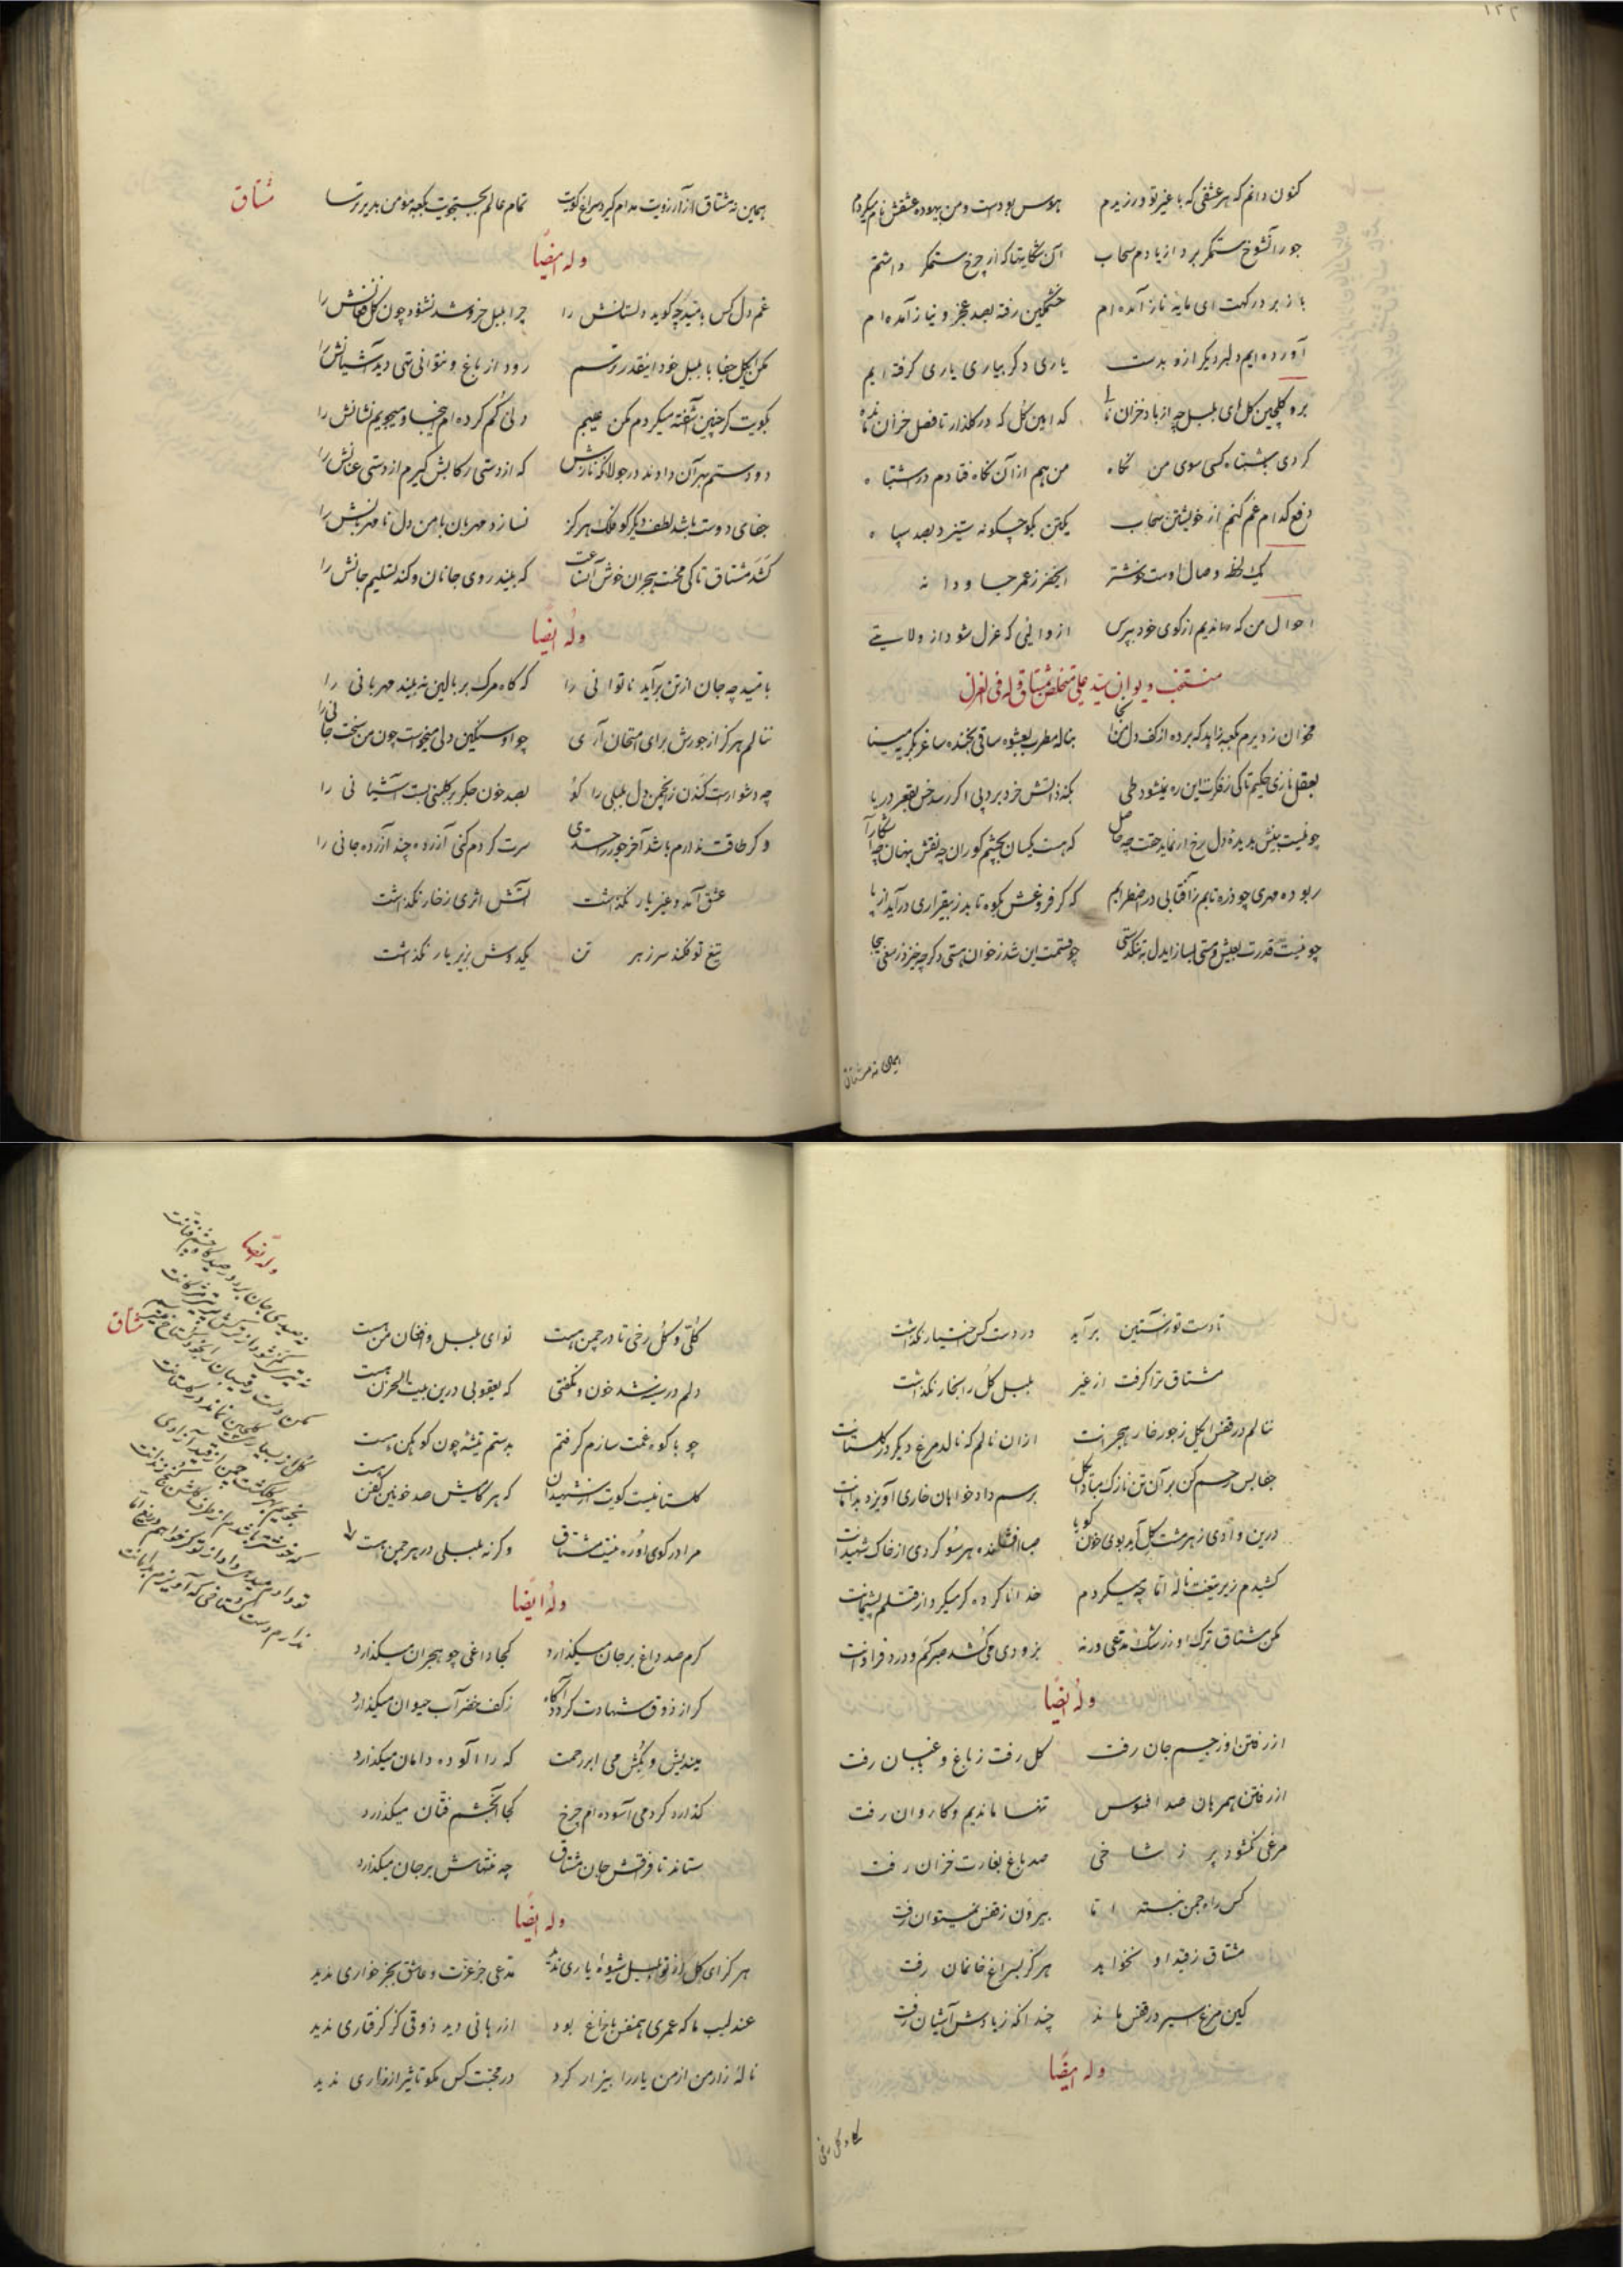 ۱۳۲
کنون دانم که هر عشقی که با غیر تو ورزیدم هوس بودست و من بیهوده عشقش نام میکردم
جور آنشوخ ستمگر برد از یادم سحاب آن شکایتها که از چرخ ستمگر داشتم
باز بر درگهت ای مایه ناز آمده‌ام خشمگین رفته بصد عجز و نیاز آمده‌ام
آورده‌ایم دلبر دیگر ازو بدست یاری دگر بیاری یاری گرفته‌ایم
برو گلچین گل ای بلبل چه از باد خزان که این گل که در گلزار تا فصل خزان
کردی بشبتاه کسی سوی من نگاه من هم از آن نگاه فتادم در اشتباه
دفع کدام غم کنم از خویشتن سحاب یکتن بگو چگونه ستیزد بصد سپاه
یک لحظه وصال اوست خوشتر ز عمر جاودانه
احوال من که ماندیم از کوی خود بپرس از والیی که عزل شود از ولایتی
منتخب دیوان سید علی متخلص بمشتاق وله فی الغزل
مخوان ز دیرم بکعبه زاهد که برده از کف دل من آنجا بناله مطرب بعشوه ساقی بخنده ساغر بگریه مینا
بعقل نازی حکیم تا کی ز فکرت این ره نمیشود طی بکنه ذاتش خرد برد پی اگر رسد خس بقعر دریا
چو نیست بینش بدیده دل رخ ار نماید حقت چه حاصل که هست یکسان بچشم کوران چه نقش پنهان چه آشکارا
ربوده مهری چو ذره تابم ز آفتابی در اضطرابم که گر فروغش بکوه تابد ز بیقراری درآید از پا
چو نیست قدرت بعیش و مستی بساز ایدل بتنگدستی چو قسمت این شد ز خوان هستی دگر چه خیزد ز سعی بیجا
همین نه مشتاق
همین نه مشتاق از آرزویت مدام گیرد سراغ کویت تمام عالم بجستجویت بکعبه مؤمن بدیر ترسا
مشتاق
وله ایضاً
غم دل کس بامید چه گوید دلستانش را چرا بلبل خروشد نشنود چون گل فغانش را
مکن ایگل جفا با بلبل خود اینقدر ترسم رود از باغ و نتوانی تهی دید آشیانش را
بکویت گر چنین آشفته میگردم مکن عیبم دلی گم کرده‌ام اینجا و میجویم نشانش را
دو دستم بهر آن دادند در جولانگه نازش که از دستی رکابش گیرم از دستی عنانش را
جفای دوست باشد لطف دیگر گو فلک هرگز نسازد مهربان با من دل نامهربانش را
کشد مشتاق تا کی محنت هجران خوش آنساعت که بیند روی جانان و کند تسلیم جانش را
وله ایضاً
بامید چه جان از تن برآید ناتوانی را که گاه مرگ بر بالین نه بیند مهربانی را
ننالم هرگز از جورش برای امتحان آری چو او سنگین دلی میخواست چون من سخت جانی را
چه دشوارست کندن ز انجمن دل بلبلی را کو بصد خون جگر بر گلبنی بست آشیانی را
و گر طاقت ندارم باشد آخر جور را حدی سرت گردم کنی آزرده چند آزرده جانی را
عشق آمد و غیر یار نگذاشت آتش اثری ز خار نگذاشت
تیغ تو فکند سر ز هر تن یکدوش بزیر بار نگذاشت
تا دست تو ز آستین برآید در دست کس اختیار نگذاشت
مشتاق ترا گرفت از غیر بلبل گل را بخار نگذاشت
ننالم در قفس ایگل ز جور خار هجرانت از آن نالم که نالد مرغ دیگر در گلستانت
جفا بس رحم کن بر آن تن نازک مبادا گل برسم دادخواهان خاری آویزد بدامانت
درین وادی ز هر مشت گل آید بوی خون گویا صبا افکنده هر سو گردی از خاک شهیدانت
کشیدم زیر تیغت ناله اما چه میکردم خدا ناکرده گر میکرد از قتلم پشیمانت
مکن مشتاق ترک او ز رشک مدعی ورنه بزودی میکشد صبر کم و درد فراوانت
وله ایضاً
از رفتن او ز جسم جان رفت گل رفت ز باغ و باغبان رفت
از رفتن همرهان صد افسوس تنها ماندیم و کاروان رفت
مرغی نگشود پر ز شاخی صد باغ بغارت خزان رفت
کس راه چمن نبسته اما بیرون ز قفس نمیتوان رفت
مشتاق ز قید او نخواهد هرگز بسراغ خانمان رفت
کین مرغ اسیر در قفس ماند چندانکه ز یادش آشیان رفت
وله ایضاً
گلی و گل رخی
گلی و گل رخی تا در چمن هست نوای بلبل و افغان من هست
دلم در سینه شد خون و نگفتی که یعقوبی درین بیت الحزن هست
چو با کوه غمت سازم گرفتم بدستم تیشه چون کوهکن هست
گلستانیست کویت از شهیدان که هر گامیش صد خونین کفن هست
مرا در کوی او ره نیست مشتاق وگرنه بلبلی در هر چمن هست
وله ایضاً
گرم صد داغ بر جان میگذارد کجا داغی چو هجران میگذارد
گر از ذوق شهادت گردد آگاه ز کف خضر آب حیوان میگذارد
میندیش و بکش می ابر رحمت که را آلوده دامان میگذارد
گذارد گر دمی آسوده‌ام چرخ کجا آنچشم فتان میگذارد
ستاند تا فراقش جان مشتاق چه منتهاش بر جان میگذارد
وله ایضاً
هرگز ای گل از تو بلبل شیوه یاری ندید مدعی جز عزت و عاشق بجز خواری ندید
عندلیب ما که عمری همنفس با زاغ بود از رهائی دید ذوقی کز گرفتاری ندید
ناله زار من از من یار را بیزار کرد در محبت کس چو من تاثیر از زاری ندید
مشتاق
وله ایضاً